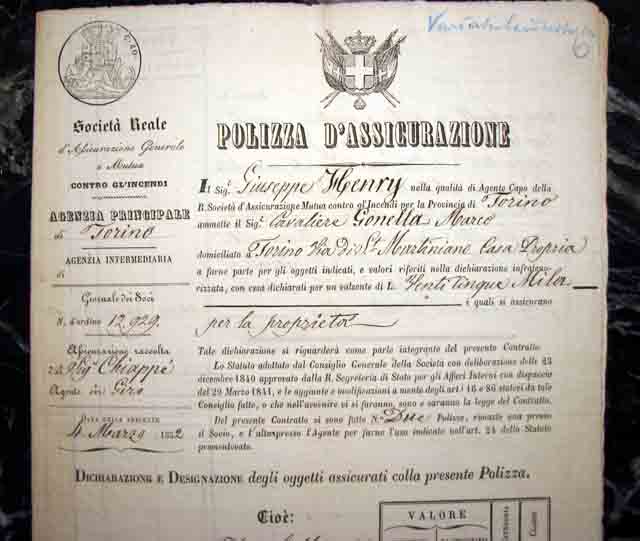 C. 40
Società Reale
d'Assicurazione Generale
e Mutua
CONTRO GL'INCENDI
AGENZIA PRINCIPALE
di Torino
AGENZIA INTERMEDIARIA
di
Giornale dei Soci
N. d'ordine 12,929.
Assicurazione raccolta
Sig. Chiappe
Agente in Giro
DATA DELLA PRESENTE
4 Marzo 1852
POLIZZA D'ASSICURAZIONE
Il Sig.r Giuseppe Henry nella qualità di Agente Capo della
R. Società d'Assicurazione Mutua contro gl'Incendi per la Provincia di Torino
ammette il Sig.r Cavaliere Gonella Marco
domiciliato a Torino Via di St. Martiniano Casa Propria
a farne parte per gli oggetti indicati, e valori riferiti nella dichiarazione infraten-
rizzata, con essa dichiarati per un valsente di L. Venticinque Mila
e quali si assicurano
per la proprietà
Tale dichiarazione si riguarderà come parte integrante del presente Contratto.
Lo Statuto adottato dal Consiglio Generale della Società con deliberazione delle 23
dicembre 1840 approvato dalla R. Segreteria di Stato per gli Affari Interni con dispaccio
del 29 Marzo 1841, e le aggiunte e modificazioni a mente degli art. 16 e 86 statevi da tale
Consiglio fatte, o che nell'avvenire vi si faranno, sono e saranno la legge del Contratto.
Del presente Contratto si sono fatte N.° Due Polizze, rimaste una presso
il Socio, e l'altra presso l'Agente per farne l'uso indicato nell'art. 24 dello Statuto
prementovato.
DICHIARAZIONE E DESIGNAZIONE degli oggetti assicurati colla presente Polizza.
Cioè:
VALORE
CATEGORIA
CLASSE